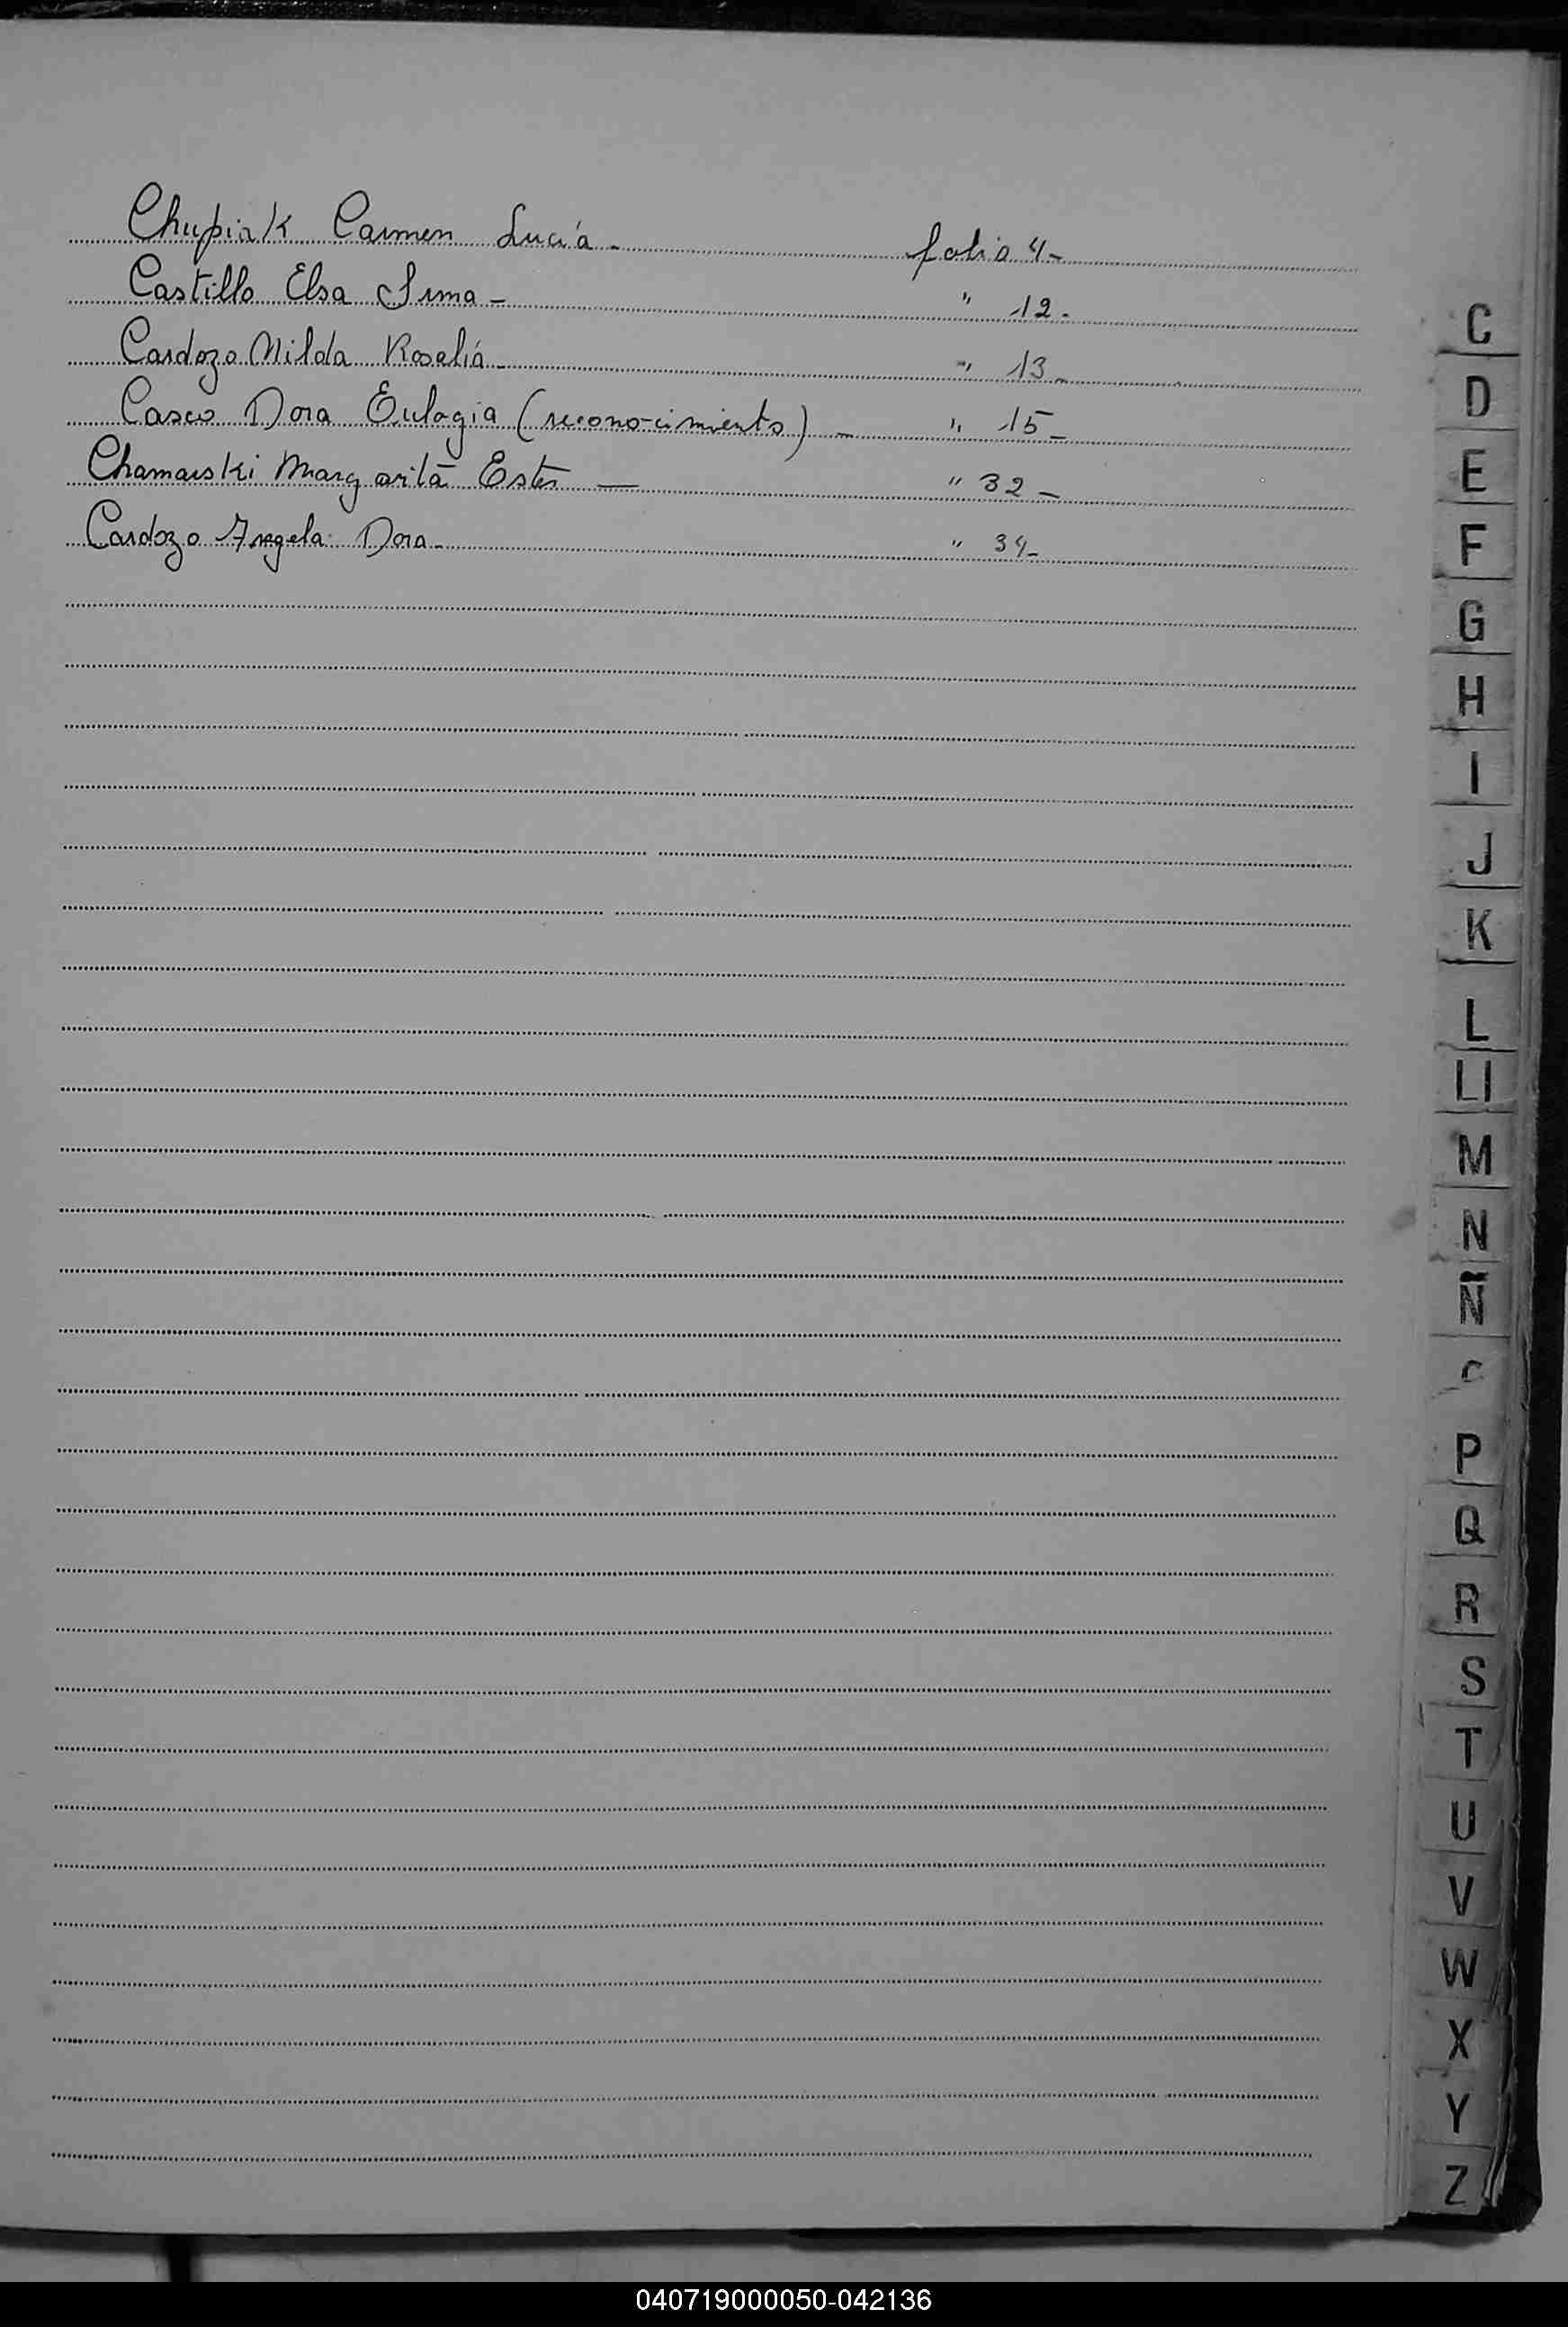 Chupiak Carmen Lucía - folio 4-
Castillo Elsa Irma - " 12-
Cardozo Nilda Roselia - " 13-
Casco Dora Eulogia (reconocimiento) - " 15-
Chamarski Margarita Ester — " 32-
Cardozo Angela Dora - " 34-
C
D
E
F
G
H
I
J
K
L
Ll
M
N
Ñ
P
Q
R
S
T
U
V
W
X
Y
Z
040719000050-042136